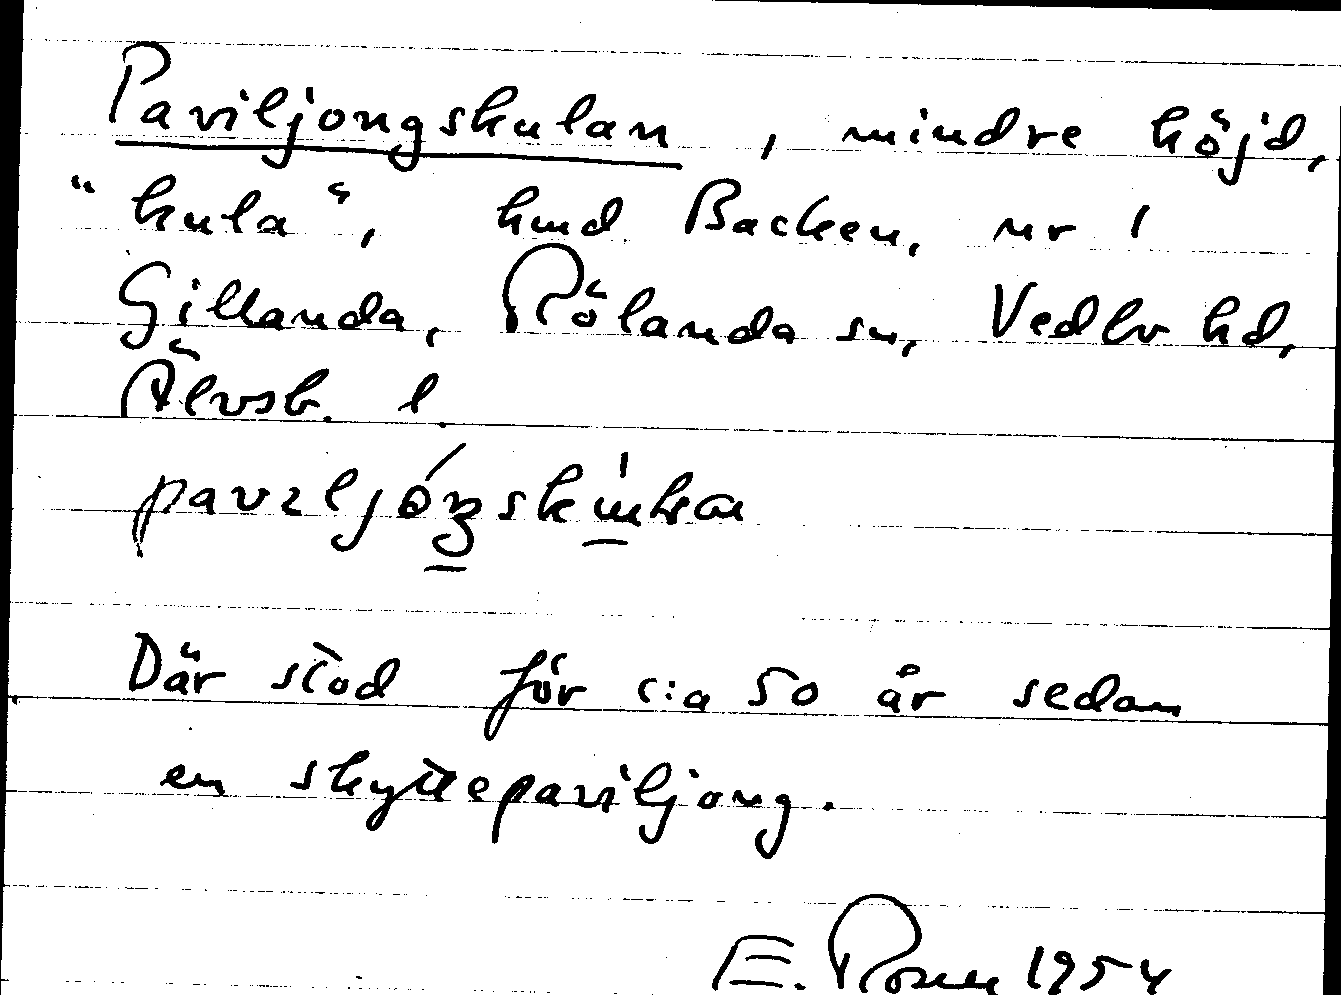 Paviljongskulan, mindre höjd,
"kula", hmd Backen, nr 1
Gillanda, Rölanda sn, Vedbo hd,
Älvsb. l.
Där stod för c:a 50 år sedan
en skyttepaviljong.
E. Rosen 1954